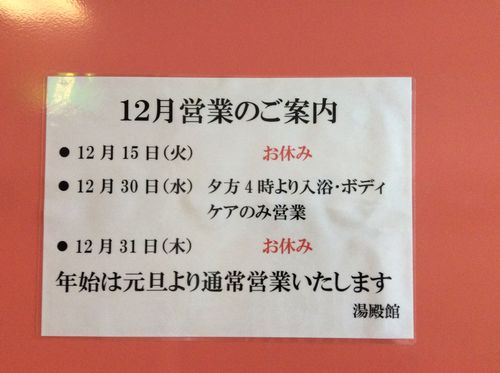 12月営業のご案内
● 12月15日(火) お休み
● 12月30日(水) 夕方4時より入浴・ボディ
ケアのみ営業
● 12月31日(木) お休み
年始は元旦より通常営業いたします
湯殿館